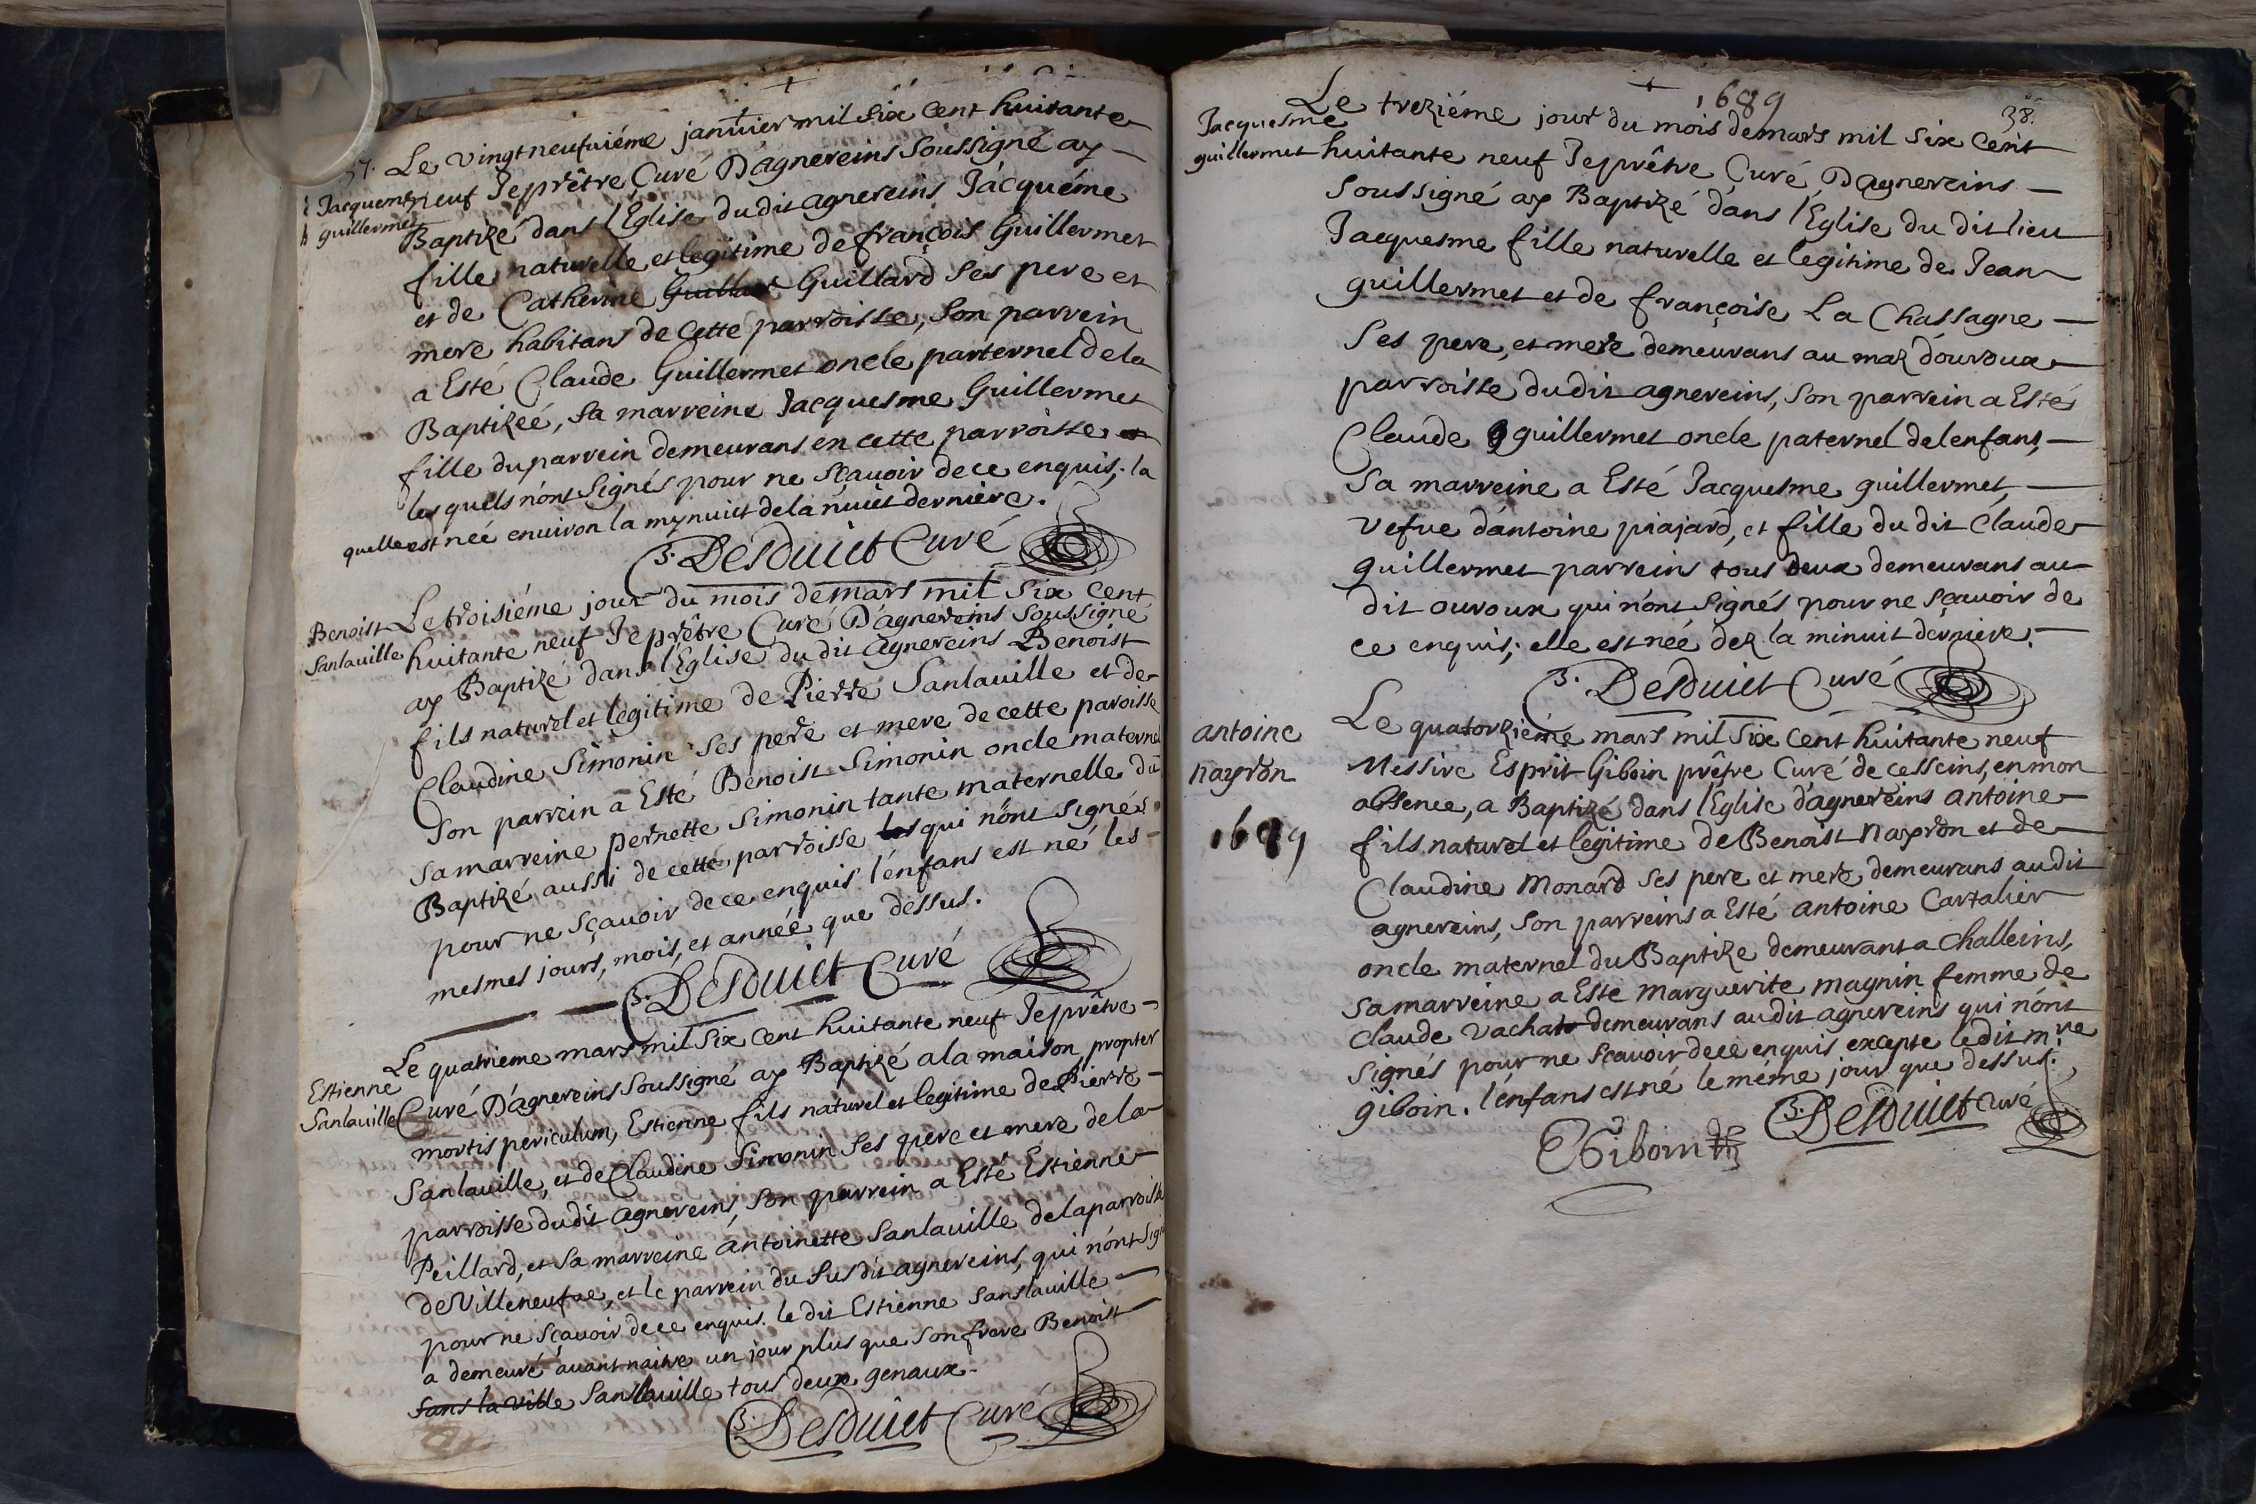 37.
Jacqueme
guillermet
Le vingt neufuiéme januier mil six cent huitante
neuf Je prêtre Curé D'agnereins soussigné ay
Baptizé dans l'Eglise du dit agnereins Jacquéme
fille naturelle et legitime de françois Guillermet
et de Catherine Guillard ses pere et
mere habitans de Cette parroisse, son parrein
a Esté Claude Guillermet oncle parternel de la
Baptizeé, sa marreine Jacquesme Guillermet
fille du parrein demeurans en cette parroisse
les quels n'ont signés pour ne sçauoir de ce enquis, la
quelle est neé enuiron la mynuict de la nuict derniere.
B. Desduict Curé
Benoist
Sanlauille
Le troisiéme jour du mois de mars mil six cent
huitante neuf Je prêtre Curé D'agnereins soussigné
ay Baptizé dans l'Eglise du dit agnereins Benoist
fils naturel et legitime de Pierre Sanlauille et de
Claudine Simonin ses pere et mere de cette paroisse
son parrein a Esté Benoist Simonin oncle maternel
sa marreine pernette Simonin tante maternelle du
Baptizé, aussi de cette parroisse qui n'ont signés
pour ne sçauoir de ce enquis l'enfans est né les
mesmes jours, mois, et anneé que dessus.
B. Desduict Curé
Estienne
Sanlauille
Le quatrieme mars mil six cent huitante neuf Je prêtre
Curé D'agnereins soussigné ay Baptizé a la maison propter
mortis periculum, Estienne fils naturel et legitime de Pierre
Sanlauille, et de Claudine Simonin ses pere et mere de la
parroisse du dit agnereins, son parrein a Esté Estienne
Peillard, et sa marreine antoinette Sanlauille de la parroisse
de Villeneufue, et le parrein du susdit agnereins, qui n'ont signé
pour ne sçauoir de ce enquis. le dit Estienne sanslauille
a demeuré auant naitre un jour plus que son frere Benoist
sans la ville Sanslauille tous deux gemaux.
B. Desduict Curé
1689
38.
Jacquesme
guillermet
Le treziéme jour du mois de mars mil six cent
huitante neuf Je prêtre Curé D'agnereins
soussigné ay Baptizé dans l'Eglise du dit lieu
Jacquesme fille naturelle et legitime de Jean
guillermet et de françoise La Chassagne
ses pere, et mere demeurans au maz d'ouroux
parroisse du dit agnereins, son parrein a Esté
Claude guillermet oncle paternel de l'enfans,
sa marreine a Esté Jacquesme guillermet,
vefue d'antoine piajard, et fille du dit Claude
guillermet parreins tous deux demeurans au
dit ouroux qui n'ont signés pour ne sçauoir de
ce enquis; elle est neé dez la minuit derniere.
B. Desduict Curé
antoine
nayron
1689
Le quatorziéme mars mil six cent huitante neuf
Messire Esprit Giboin prêtre Curé de cesseins, en mon
absence, a Baptizé dans l'Eglise d'agnereins antoine
fils naturel et legitime de Benoist nayron et de
Claudine Monard ses pere et mere demeurans au dit
agnereins, son parreins a Esté antoine Cartalier
oncle maternel du Baptize demeurant a Challeins,
sa marreine a Esté marguerite magnin femme de
Claude Vachat demeurans au dit agnereins qui n'ont
signés pour ne sçauoir de ce enquis excepte le dit mre
giboin. l'enfans est né le méme jour que dessus.
B. Desduict Curé
E Giboin